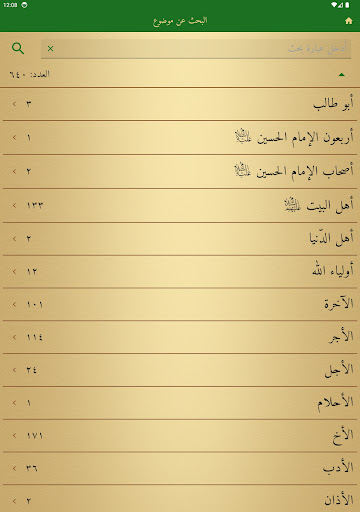 12:08
البحث عن موضوع
أدخل عبارة بحث
العدد: ٦٤٠
أبو طالب ٣
أربعون الإمام الحسين ١
أصحاب الإمام الحسين ٢
أهل البيت ١٣٣
أهل الدّنيا ٢
أولياء الله ١٢
الآخرة ١٠١
الأجر ١١٤
الأجل ٢٤
الأحلام ١
الأخ ١٧١
الأدب ٣٦
الأذان ٢